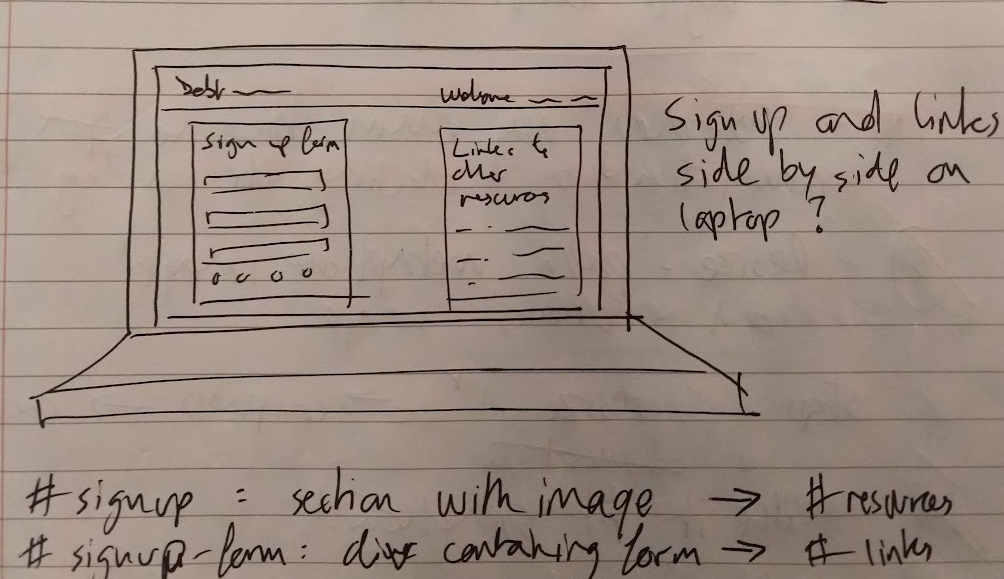 Debt
Welcome
Sign up form
Links to
other
resources
Sign up and links
side by side on
laptop ?
# signup : section with image → # resources
# signup-form : div containing form → # links